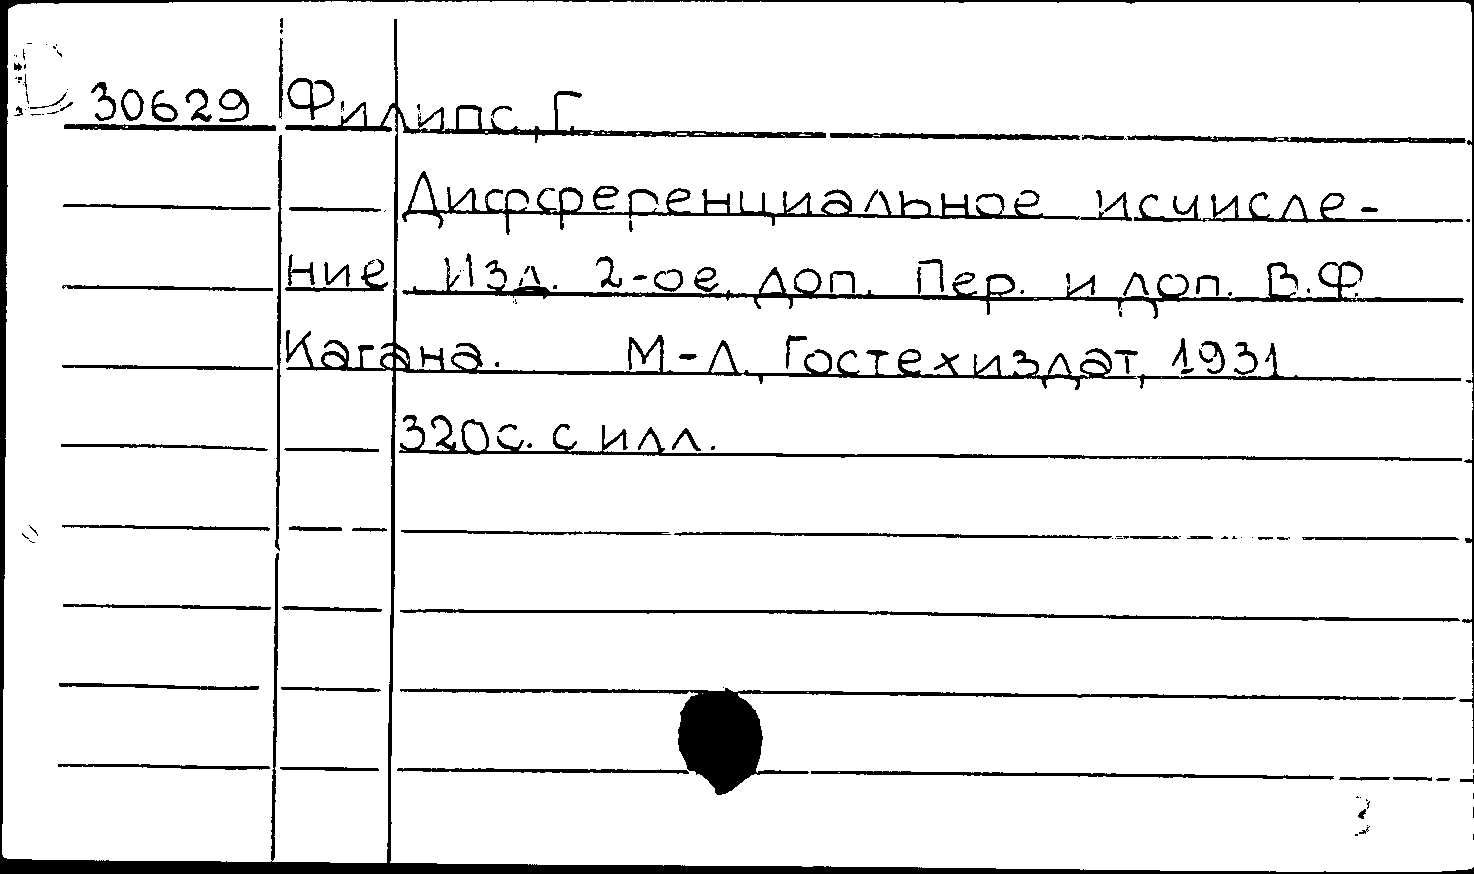 30629 Филипс, Г.
Дифференциальное исчисле-
ние. Изд. 2-ое, доп. Пер. и доп. В.Ф.
Кагана. М-Л., Гостехиздат, 1931.
320с. с илл.